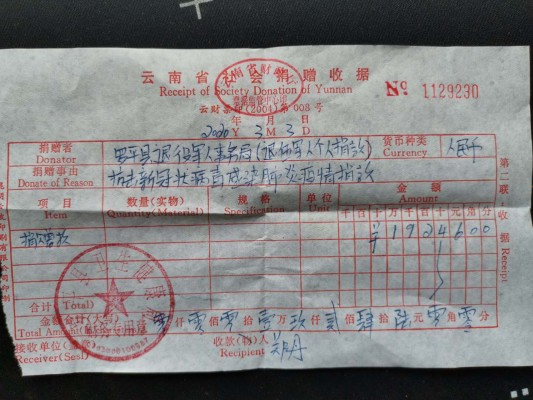 云南省社会捐赠收据
Receipt of Society Donation of Yunnan
№ 1129230
云财票印(2004)第008号
2020年3月3日
Y M D
捐赠者 罗平县退役军人事务局(退伍军人个人捐款) 货币种类 人民币
Donator Currency
捐赠事由 抗击新冠状病毒感染肺炎疫情捐款
Donate of Reason
项目 数量(实物) 规格 单位 金额
Item Quantity(Material) Specification Unit Amount
千百十万千百十元角分
捐赠款 ¥1924600
合计(Total)
金额合计(大写) 零仟零佰零拾壹万玖仟贰佰肆拾陆元零角零分
Total Amount
接收单位(盖章) 收款(物)人
Receiver(Seal) Recipient
第二联:收据 Receipt